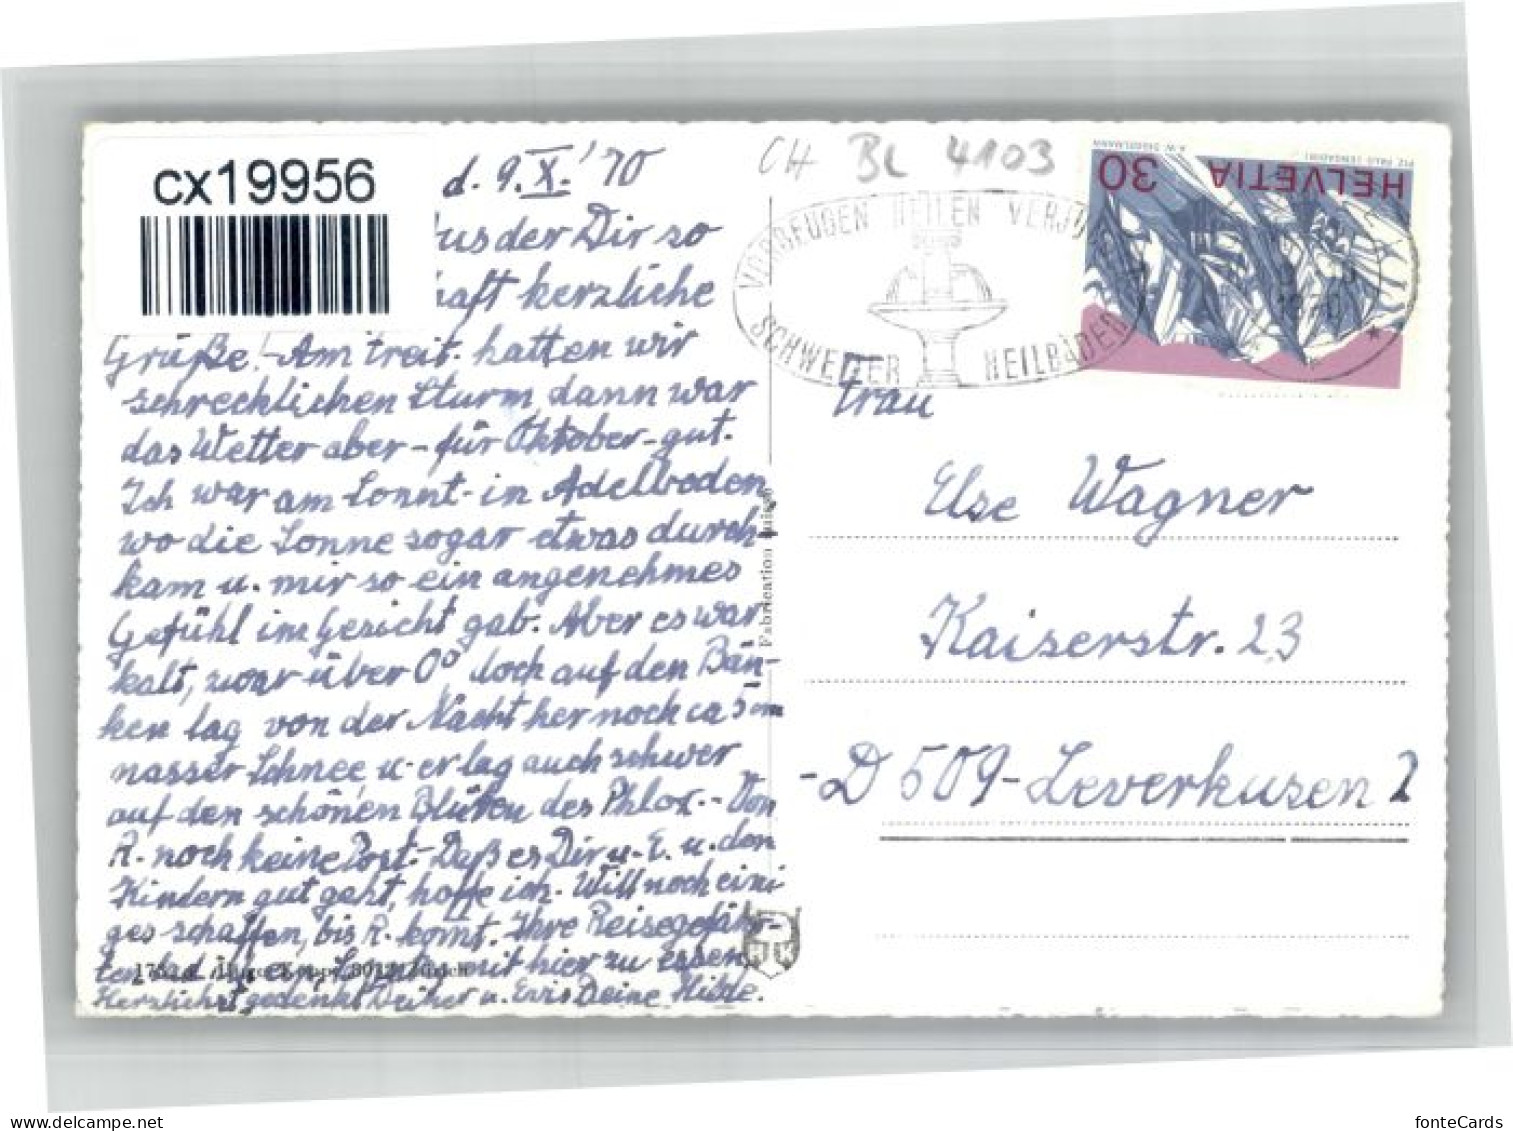 cx19956
d. 9. X. '70
aus der Dir so
haft herzliche
Grüße! – Am Freit. hatten wir
schrecklichen Sturm, dann war
das Wetter aber – für Oktober – gut.
Ich war am Sonnt. in Adelboden,
wo die Sonne sogar etwas durch-
kam u. mir so ein angenehmes
Gefühl im Gesicht gab. Aber es war
kalt, zwar über 0° doch auf den Bän-
ken lag von der Nacht her noch ca 5 cm
nasser Schnee, u. er lag auch schwer
auf den schönen Blüten des Phlox. – Von
R. noch keine Post. – Daß es Dir u. E. u. den
Kindern gut geht, hoffe ich. Will noch eini
ges schaffen, bis R. kommt. Ihre Reisegefähr-
ten mit hier zu essen,
Herzlichst gedenkt Deiner u. Deine Hilde.
Hugo Kopp, Zürich
Fabrication suisse
HK
CH BL 4103
VORBEUGEN HEILEN VERJÜ
SCHWEIZER HEILBÄDER
1970
HELVETIA 30
PIZ PALÜ (ENGADIN)
Frau
Else Wagner
Kaiserstr. 23
- D 509 - Leverkusen 2
fonteCards